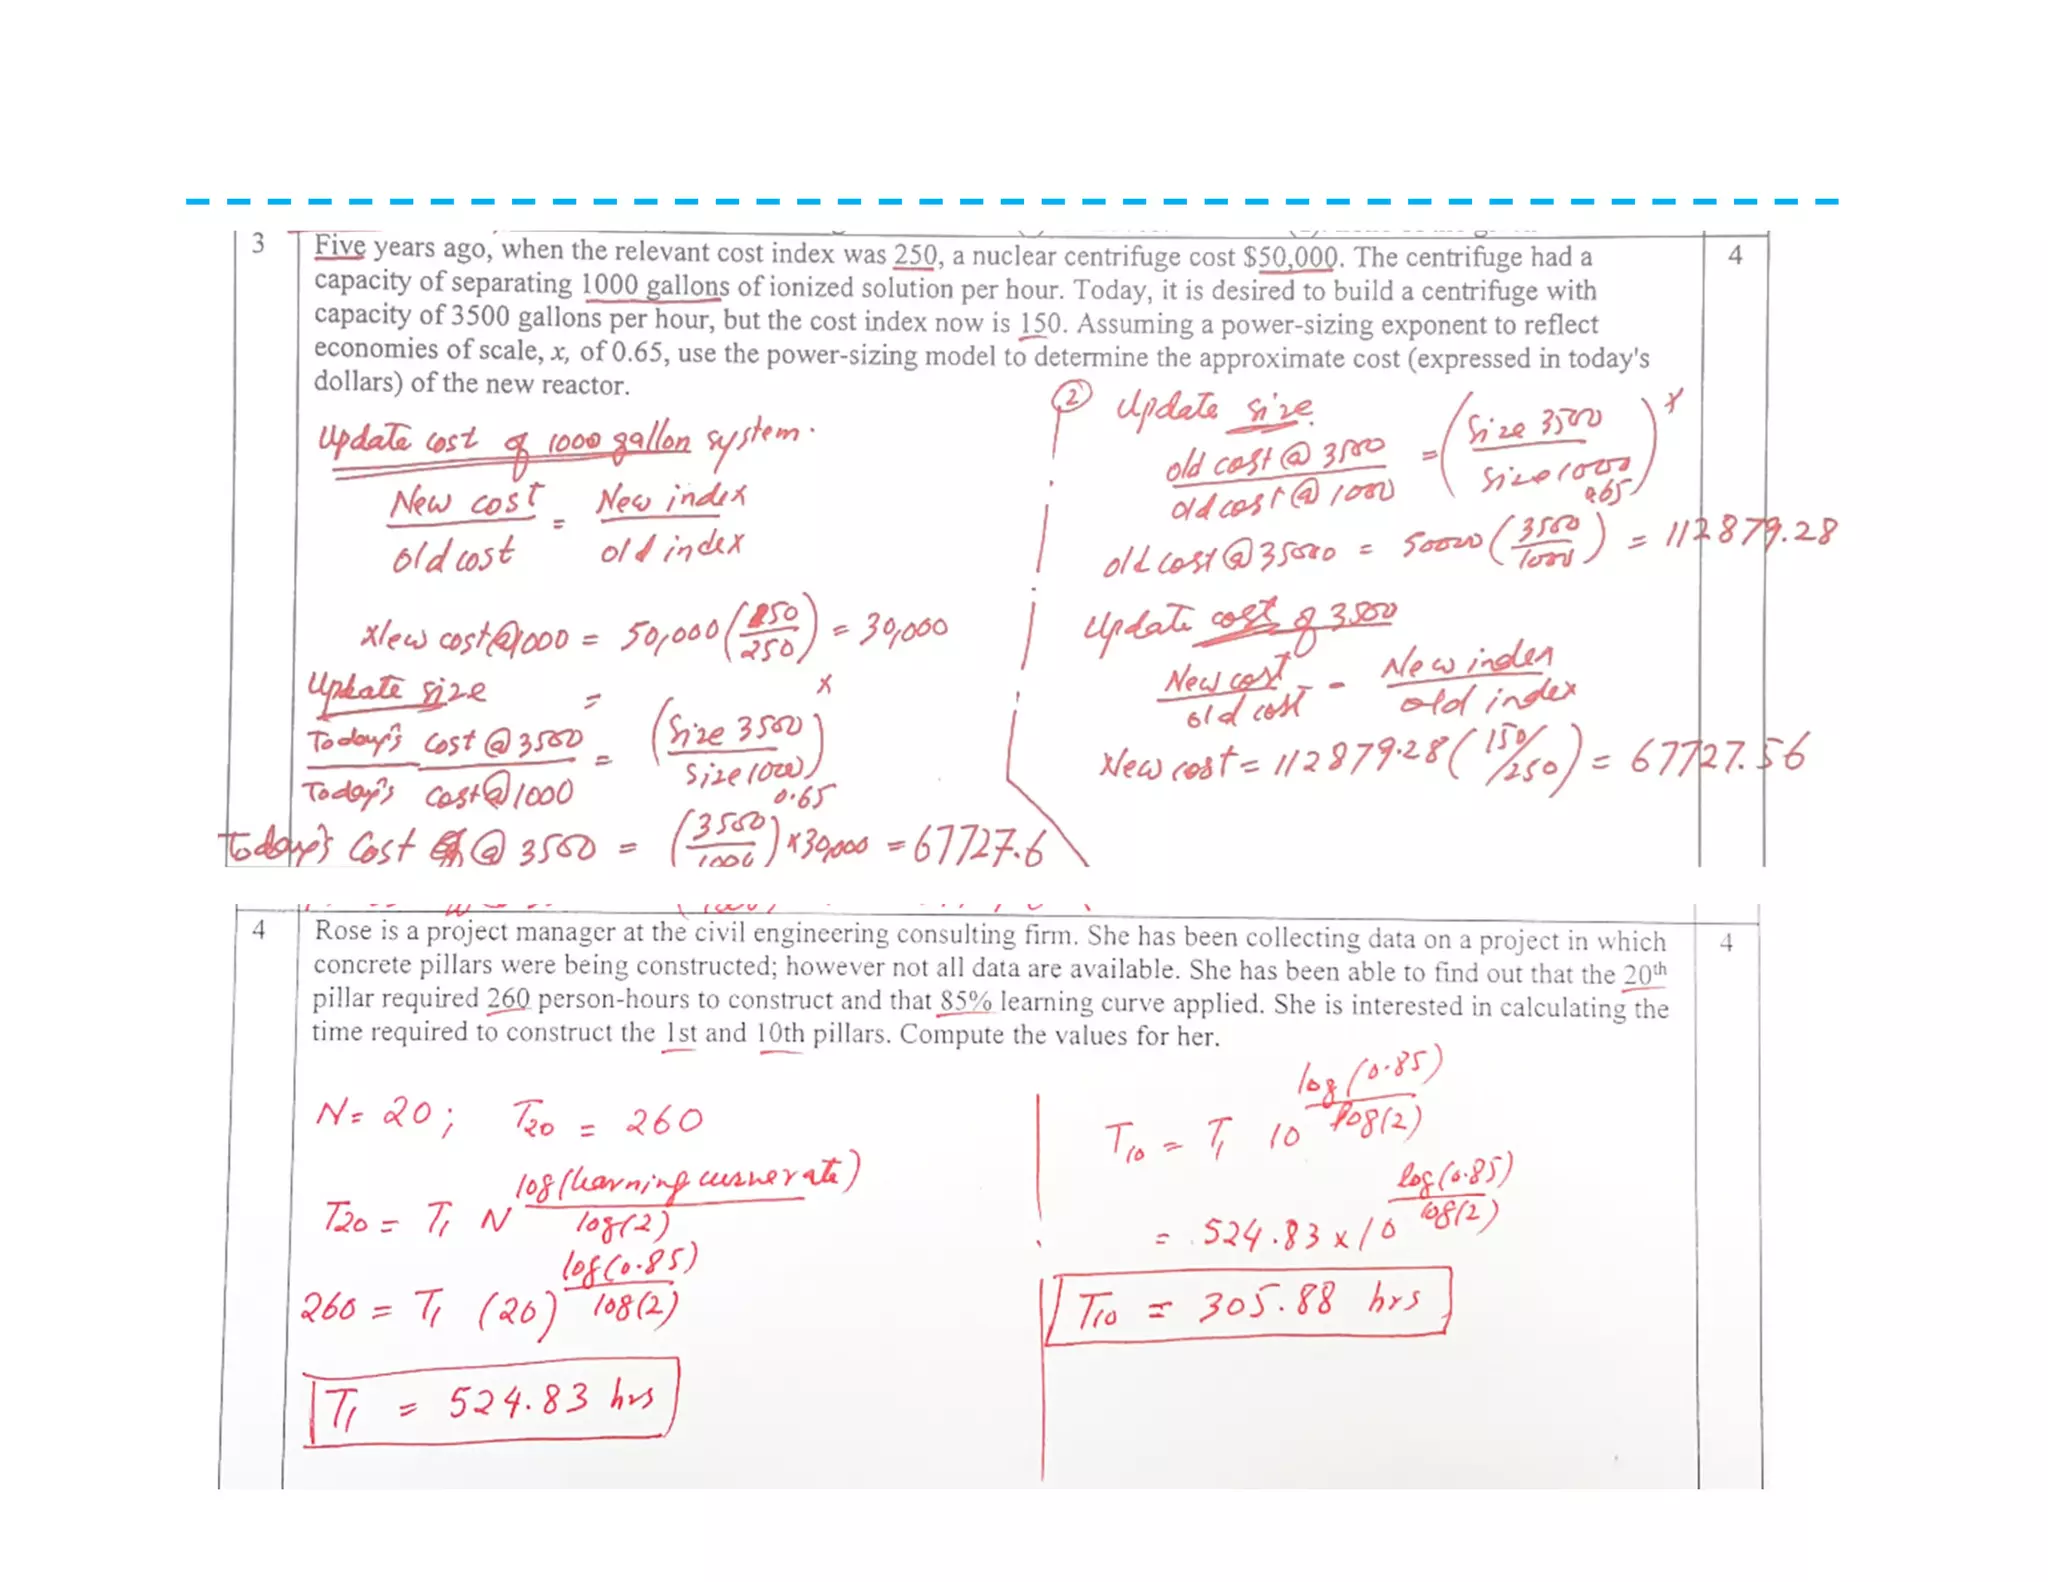 3 Five years ago, when the relevant cost index was 250, a nuclear centrifuge cost $50,000. The centrifuge had a 4
capacity of separating 1000 gallons of ionized solution per hour. Today, it is desired to build a centrifuge with
capacity of 3500 gallons per hour, but the cost index now is 150. Assuming a power-sizing exponent to reflect
economies of scale, x, of 0.65, use the power-sizing model to determine the approximate cost (expressed in today's
dollars) of the new reactor.
Update cost of 1000 gallon system.
New cost = New index
old cost old index
New cost@1000 = 50,000 (150/250) = 30,000
Update size =
Today's cost @ 3500 = (Size 3500) x
Today's cost@1000 Size 1000
0.65
Today's Cost @ 3500 = (3500/1000) x 30,000 = 67727.6
② Update size.
old cost @ 3500 = (Size 3500) x
old cost @ 1000 Size 1000
0.65
old cost @ 3500 = 50000 (3500/1000) = 112879.28
Update cost of 3500
New cost - New index
old cost old index
New cost = 112879.28 (150/250) = 67727.56
4 Rose is a project manager at the civil engineering consulting firm. She has been collecting data on a project in which 4
concrete pillars were being constructed; however not all data are available. She has been able to find out that the 20th
pillar required 260 person-hours to construct and that 85% learning curve applied. She is interested in calculating the
time required to construct the 1st and 10th pillars. Compute the values for her.
N = 20; T20 = 260
log(learning curve rate)
T20 = T1 N log(2)
log(0.85)
260 = T1 (20) log(2)
T1 = 524.83 hrs
log(0.85)
T10 = T1 10 log(2)
log(0.85)
= 524.83 x 10 log(2)
T10 = 305.88 hrs